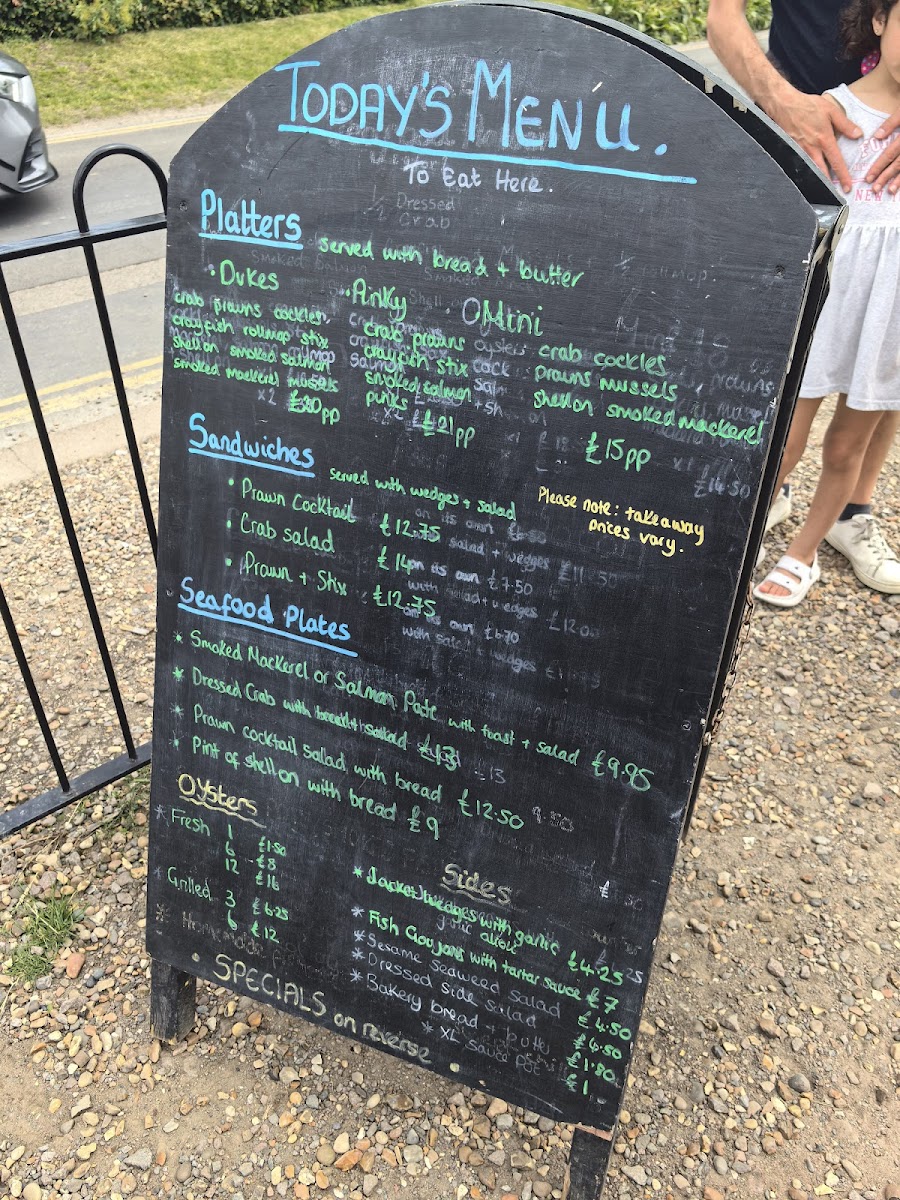 TODAY'S MENU.
To Eat Here.
Platters served with bread + butter
• Dukes
crab prawns cockles
crayfish rollmop stix
shellon smoked salmon
smoked mackerel mussels
£30pp
• Pinky
crab prawns
crayfish stix
smoked salmon
£21pp
• Mini
crab cockles
prawns mussels
shellon smoked mackerel
£15pp
Sandwiches served with wedges + salad
• Prawn Cocktail £12.75
• Crab salad £14
• Prawn + Stix £12.75
Please note: takeaway
prices vary.
Seafood Plates
* Smoked Mackerel or Salmon Pate with toast + salad £9.95
* Dressed Crab with bread + salad £13
* Prawn cocktail salad with bread £12.50
* Pint of shellon with bread £9
Oysters
* Fresh 1 £1.50
6 £8
12 £16
* Grilled 3 £6.25
6 £12
Sides
* Jacket wedges with garlic £4.25
* Fish Goujons with tartar sauce £7
* Sesame Seaweed Salad £4.50
* Dressed side salad £4.50
* Bakery bread + butter £1.80
* XL sauce pot £1
• SPECIALS on reverse •